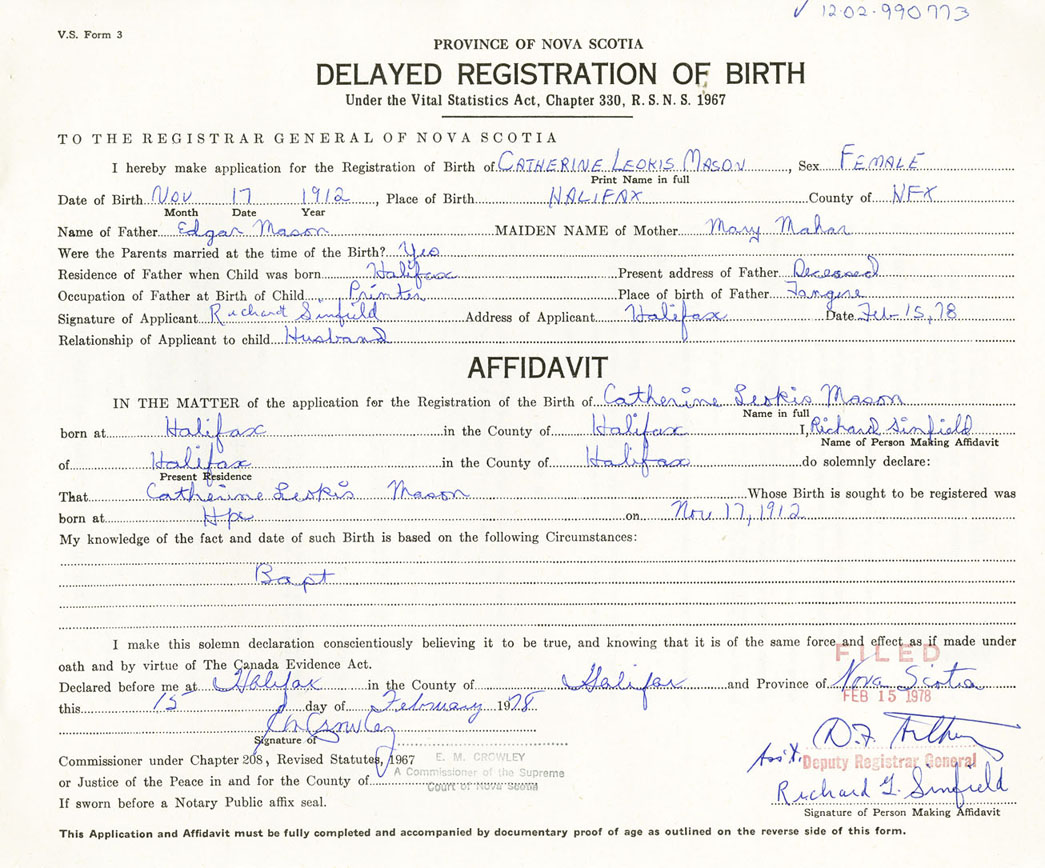 ✓ 12-02-990773
V.S. Form 3
PROVINCE OF NOVA SCOTIA
DELAYED REGISTRATION OF BIRTH
Under the Vital Statistics Act, Chapter 330, R. S. N. S. 1967
TO THE REGISTRAR GENERAL OF NOVA SCOTIA
I hereby make application for the Registration of Birth of CATHERINE LEOKIS MASON, Sex FEMALE
Print Name in full
Date of Birth Nov 17 1912, Place of Birth HALIFAX County of HFX
Month Date Year
Name of Father Edgar Mason MAIDEN NAME of Mother Mary Mahar
Were the Parents married at the time of the Birth? Yes
Residence of Father when Child was born Halifax Present address of Father Deceased
Occupation of Father at Birth of Child Printer Place of birth of Father Tangire
Signature of Applicant Richard Sinfield Address of Applicant Halifax Date Feb 15, 78
Relationship of Applicant to child Husband
AFFIDAVIT
IN THE MATTER of the application for the Registration of the Birth of Catherine Leokis Mason
Name in full
born at Halifax in the County of Halifax I, Richard Sinfield
Name of Person Making Affidavit
of Halifax in the County of Halifax do solemnly declare:
Present Residence
That Catherine Leokis Mason Whose Birth is sought to be registered was
born at Hfx on Nov. 17, 1912
My knowledge of the fact and date of such Birth is based on the following Circumstances:
Bapt
I make this solemn declaration conscientiously believing it to be true, and knowing that it is of the same force and effect as if made under
oath and by virtue of The Canada Evidence Act.
FILED
Declared before me at Halifax in the County of Halifax and Province of Nova Scotia
FEB 15 1978
this 15 day of February 1978
EM Crowley
Signature of
Commissioner under Chapter 208, Revised Statutes, 1967
E. M. CROWLEY
Ass't. Deputy Registrar General
or Justice of the Peace in and for the County of
A Commissioner of the Supreme
Court of Nova Scotia
Richard G. Sinfield
If sworn before a Notary Public affix seal.
Signature of Person Making Affidavit
This Application and Affidavit must be fully completed and accompanied by documentary proof of age as outlined on the reverse side of this form.